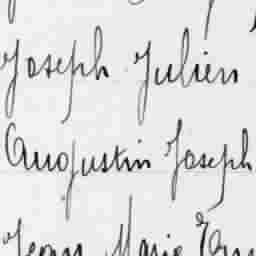 Joseph Julien
Augustin Joseph
Jean Marie